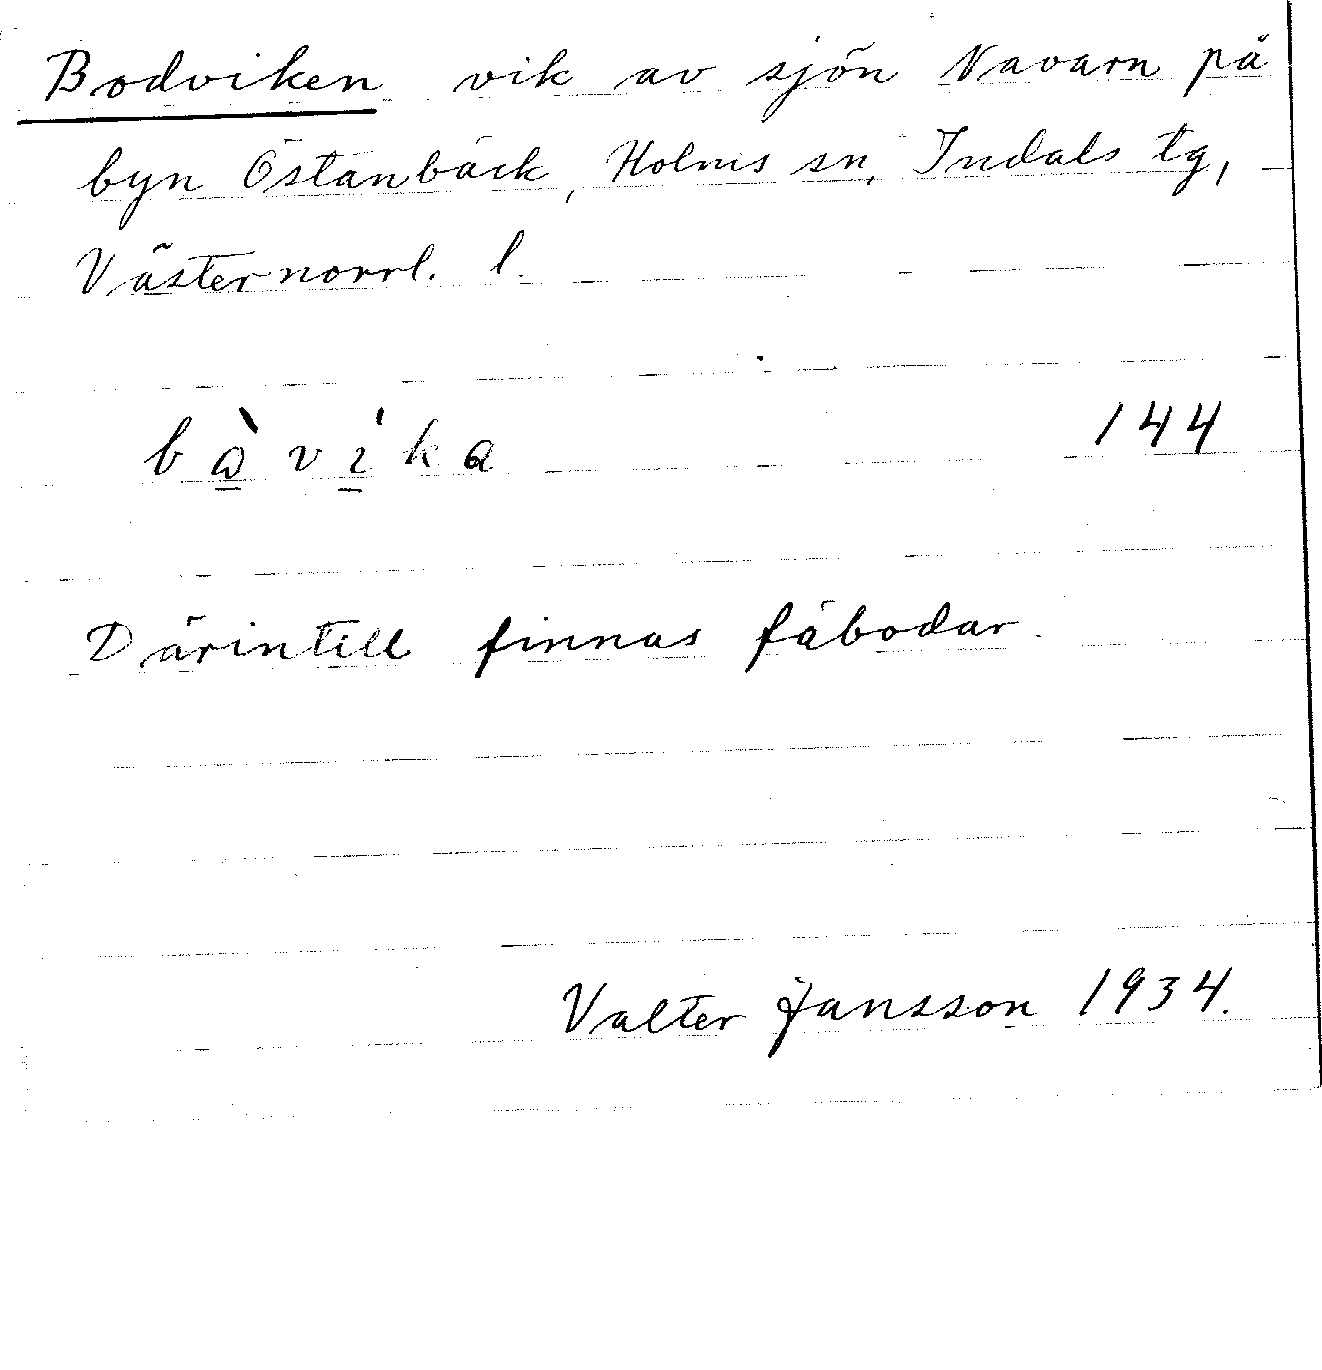 Bodviken vik av sjön Navarn på
byn Östanbäck, Holms sn, Indals tg,
Västernorrl. l.
bꜿ̀víka 144
Därintill finnas fäbodar.
Valter Jansson 1934.